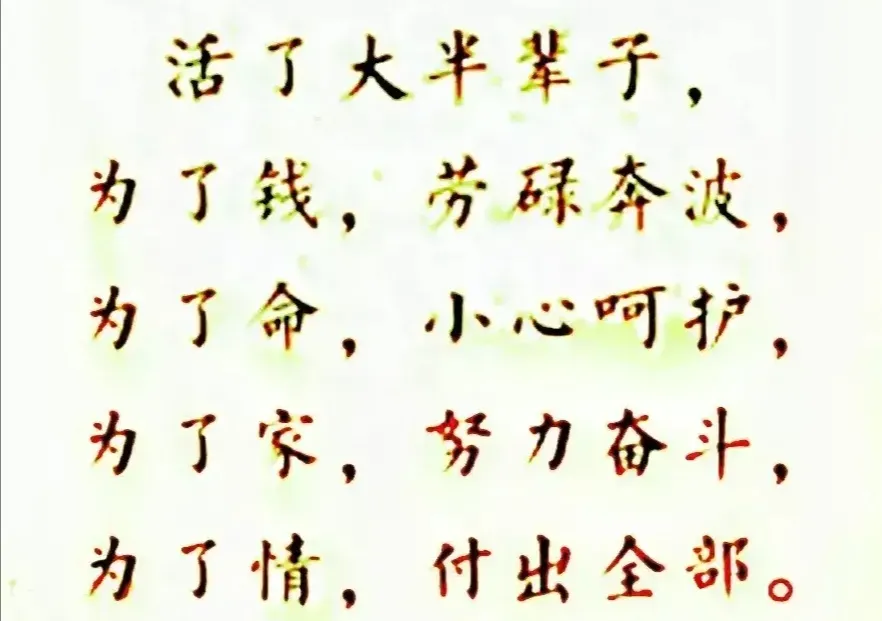 活了大半辈子，
为了钱，劳碌奔波，
为了命，小心呵护，
为了家，努力奋斗，
为了情，付出全部。